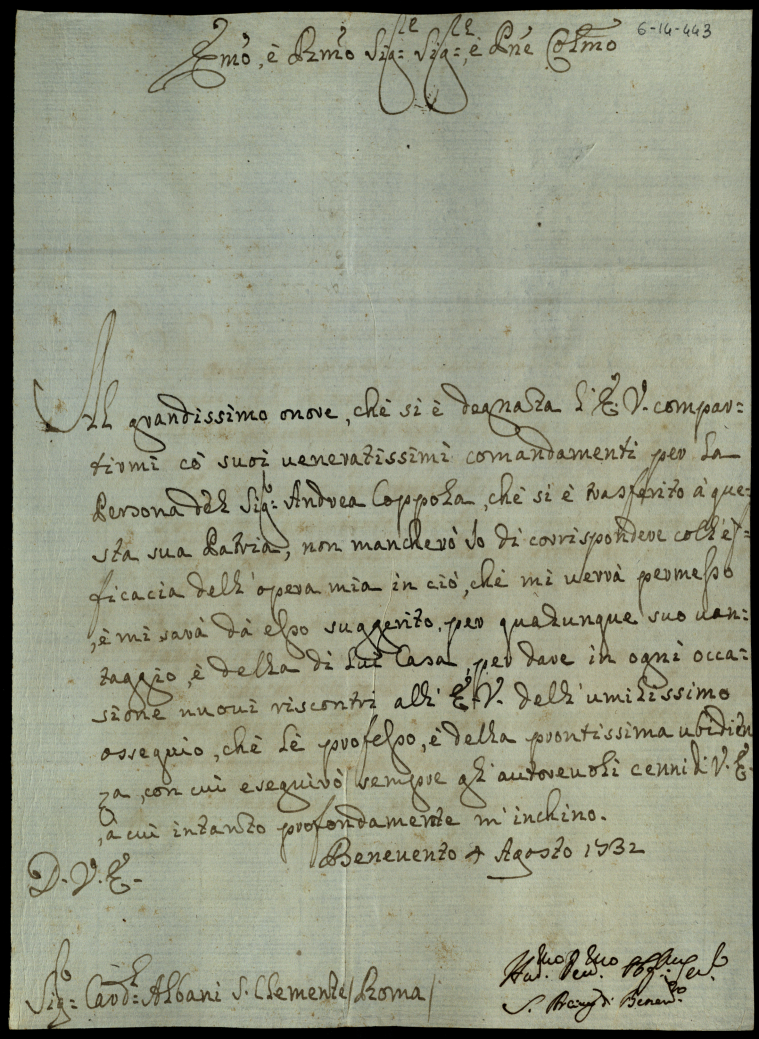 6-14-443
Emo, è Rmo Sigre Sigre, è Pne Colmo
All grandissimo onore, chè si è degnata l'E. V. compar=
tirmi co' suoi veneratissimi comandamenti per la
Persona dell Sigr. Andrea Coppola, chè si è trasferito à que=
sta sua Patria, non mancherò Io di corrispondere coll'ef=
ficacia dell'opera mia in ciò, chè mi verrà permesso
, è mi sarà dà esso suggerito, per qualunque suo van=
taggio, è della di lui Casa, per dare in ogni occa=
sione nuovi riscontri all'E. V. dell'umilissimo
ossequio, chè lè professo, è della prontissima ubidien
za, con cui eseguirò sempre gl'autorevoli cenni di V. E.
, à cui intanto profondamente m'inchino.
Benevento 4 Agosto 1732
D. V. E.
Sigr. Card. Albani S. Clemente / Roma /
Hum. Dev. Obl. Ser.
S. di Benev.